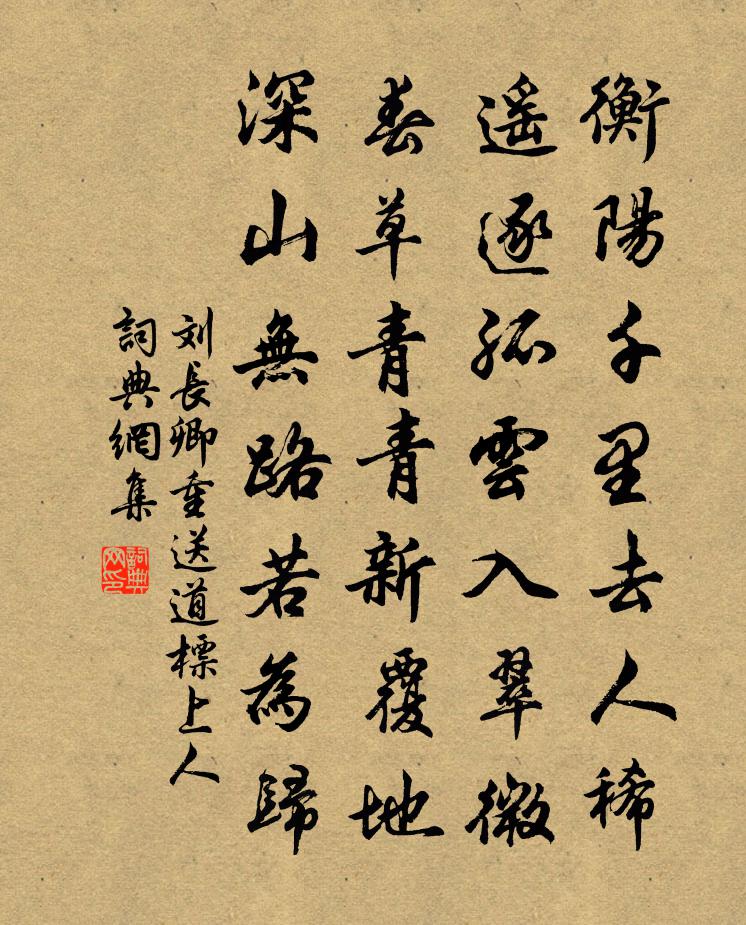 衡陽千里去人稀
遥逐孤雲入翠微
春草青青新覆地
深山無路若為歸
刘長卿重送道標上人
詞典網集
詞典网印